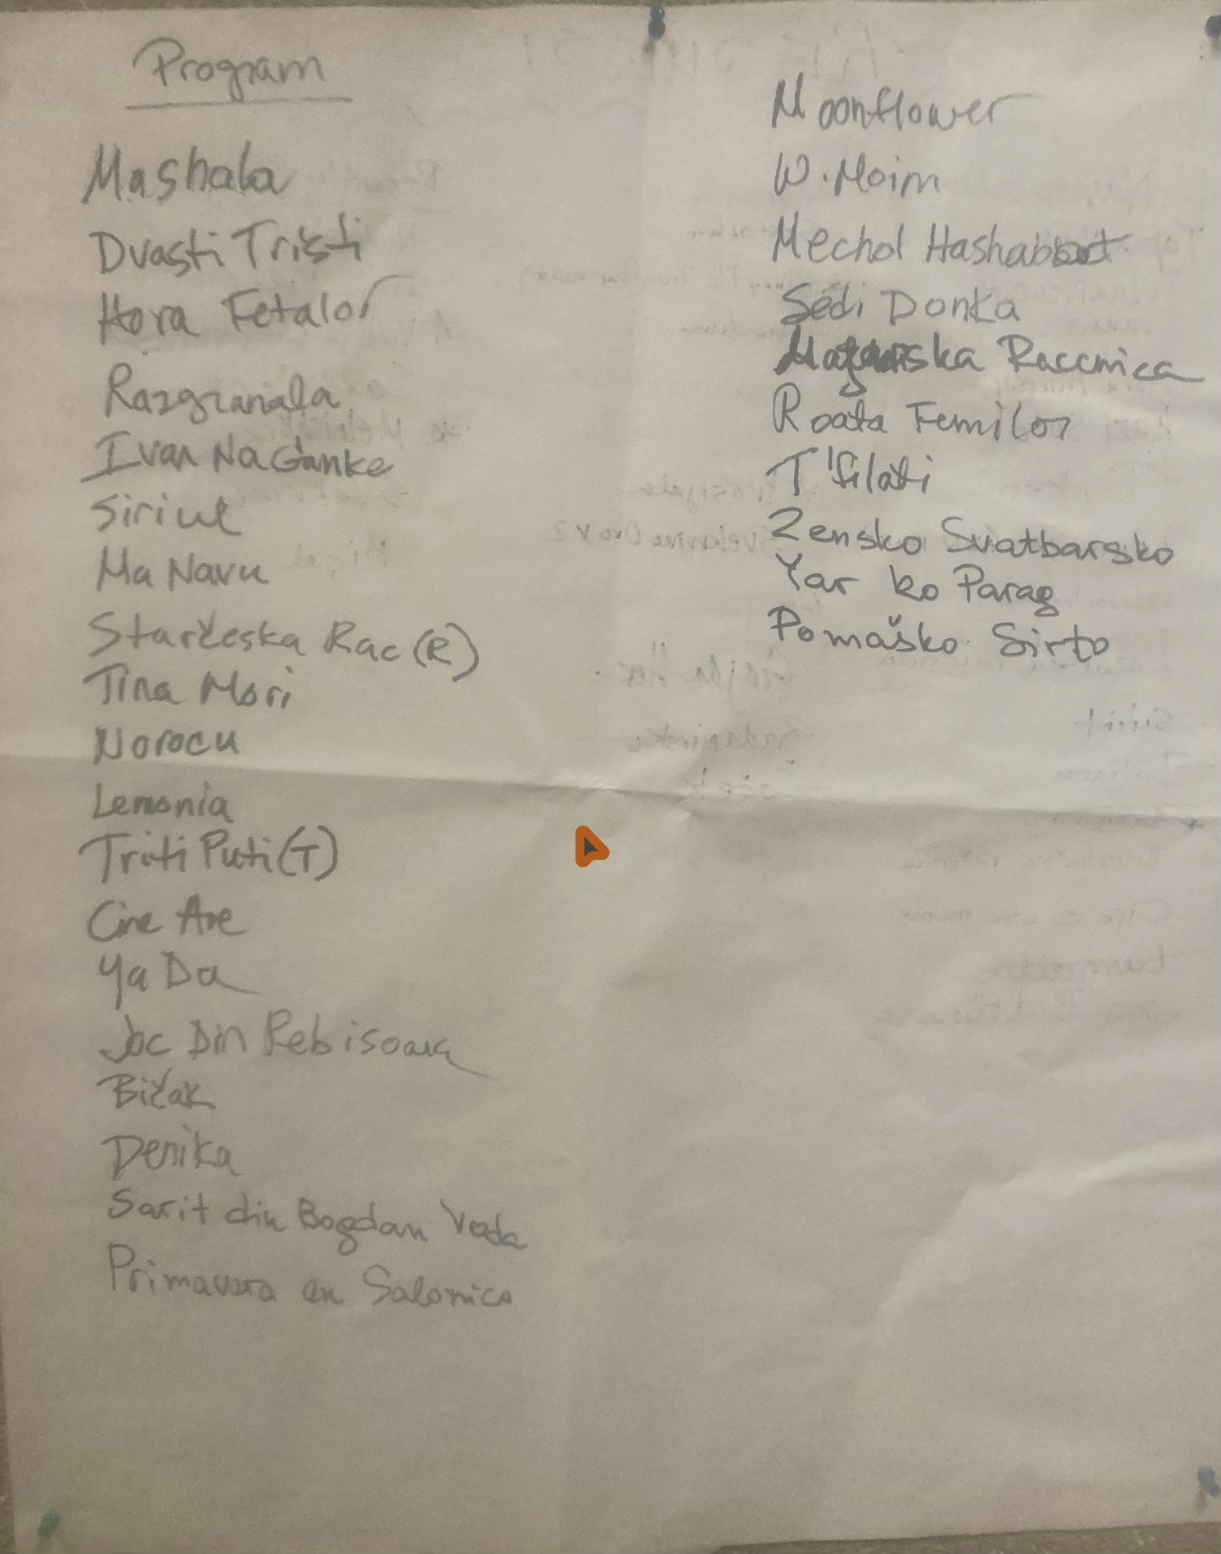 Program
Mashala
Dvasti Tristi
Hora Fetalor
Razgranala
Ivan Na Ganke
Siriul
Ma Navu
Starčeska Rac (R)
Tina Mori
Norocu
Lemonia
Triti Puti (T)
Cine Are
Ya Da
Joc Din Rebisoara
Bičak
Denika
Sarit din Bogdan Voda
Primavera en Salonico
Moonflower
W. Moim
Mechol Hashabbat
Sedi Donka
Racenica
Roata Femilor
T'filati
Zensko Svatbarsko
Yar ko Parag
Pomaško Sirto